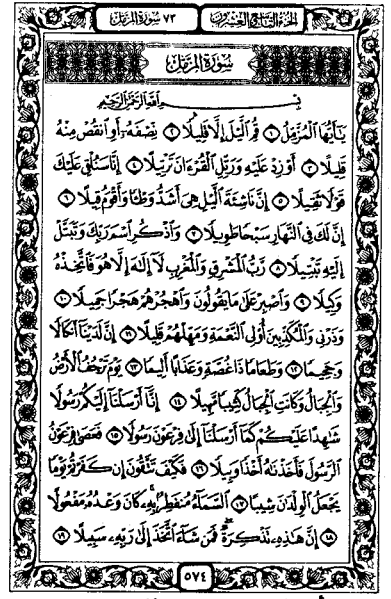 الجزء التاسع والعشرون ٧٣ سورة المزمل
سُورَةُ المُزَّمِّل
بِسْمِ اللَّهِ الرَّحْمَٰنِ الرَّحِيمِ
يَٰٓأَيُّهَا الْمُزَّمِّلُ ١ قُمِ الَّيْلَ إِلَّا قَلِيلًا ٢ نِّصْفَهُۥٓ أَوِ انقُصْ مِنْهُ
قَلِيلًا ٣ أَوْ زِدْ عَلَيْهِ وَرَتِّلِ الْقُرْءَانَ تَرْتِيلًا ٤ إِنَّا سَنُلْقِي عَلَيْكَ
قَوْلًا ثَقِيلًا ٥ إِنَّ نَاشِئَةَ الَّيْلِ هِيَ أَشَدُّ وَطْـًٔا وَأَقْوَمُ قِيلًا ٦
إِنَّ لَكَ فِي النَّهَارِ سَبْحًا طَوِيلًا ٧ وَاذْكُرِ اسْمَ رَبِّكَ وَتَبَتَّلْ
إِلَيْهِ تَبْتِيلًا ٨ رَّبُّ الْمَشْرِقِ وَالْمَغْرِبِ لَآ إِلَٰهَ إِلَّا هُوَ فَاتَّخِذْهُ
وَكِيلًا ٩ وَاصْبِرْ عَلَىٰ مَا يَقُولُونَ وَاهْجُرْهُمْ هَجْرًا جَمِيلًا ١٠
وَذَرْنِي وَالْمُكَذِّبِينَ أُو۟لِي النَّعْمَةِ وَمَهِّلْهُمْ قَلِيلًا ١١ إِنَّ لَدَيْنَآ أَنكَالًا
وَجَحِيمًا ١٢ وَطَعَامًا ذَا غُصَّةٍ وَعَذَابًا أَلِيمًا ١٣ يَوْمَ تَرْجُفُ الْأَرْضُ
وَالْجِبَالُ وَكَانَتِ الْجِبَالُ كَثِيبًا مَّهِيلًا ١٤ إِنَّآ أَرْسَلْنَآ إِلَيْكُمْ رَسُولًا
شَٰهِدًا عَلَيْكُمْ كَمَآ أَرْسَلْنَآ إِلَىٰ فِرْعَوْنَ رَسُولًا ١٥ فَعَصَىٰ فِرْعَوْنُ
الرَّسُولَ فَأَخَذْنَٰهُ أَخْذًا وَبِيلًا ١٦ فَكَيْفَ تَتَّقُونَ إِن كَفَرْتُمْ يَوْمًا
يَجْعَلُ الْوِلْدَٰنَ شِيبًا ١٧ السَّمَآءُ مُنفَطِرٌۢ بِهِۦ كَانَ وَعْدُهُۥ مَفْعُولًا
١٨ إِنَّ هَٰذِهِۦ تَذْكِرَةٌ فَمَن شَآءَ اتَّخَذَ إِلَىٰ رَبِّهِۦ سَبِيلًا ١٩
٥٧٤